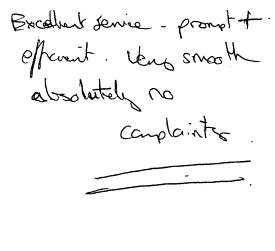 Excellent service - prompt +
efficient. Very smooth
absolutely no
complaints.